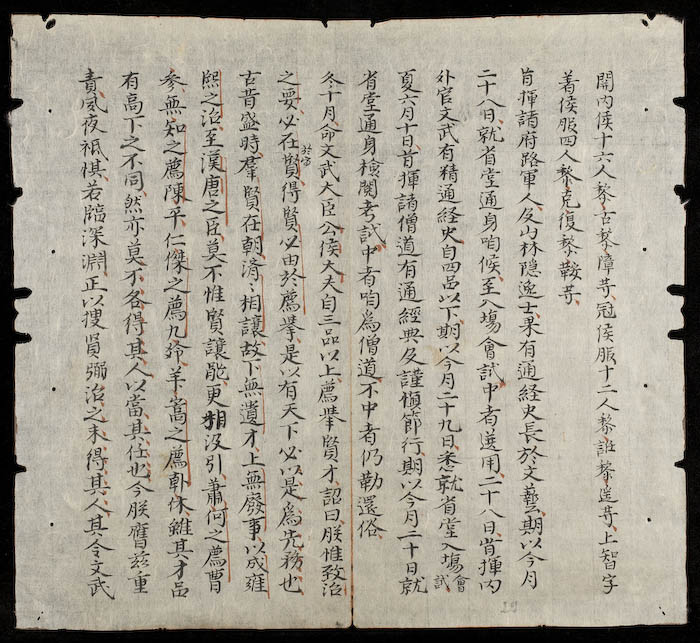 開内侯十六人黎古黎障䓁冠侯服十二人黎誑黎送䓁上智字
着侯服四人黎克復黎鞍䓁
㫖揮諸府路軍人及山林隱逸士果有通経史長於文藝期以今月
二十八日就省堂通身听候至入場會試中者選用二十八日㫖揮内
外官文武有精通経史自四品以下期以今月二十九日悉就省堂入場會試
夏六月十日㫖揮諸僧道有通經典及謹愼節行期以今月二十日就
省堂通身檢閱考試中者听為僧道不中者仍勒還俗
冬十月命文武大臣公侯大夫自三品以上薦舉賢才詔曰朕惟致治
之要必在於得賢得賢必由於薦舉是以有天下必以是為先務也
古昔盛時羣賢在朝濟〻相讓故下無遺才上無廢事以成雍
熙之治至漢唐之臣莫不惟賢讓能更相汲引蕭何之薦曹
參無知之薦陳平仁傑之薦九齡羊嵩之薦韓休雖其才品
有高下之不同然亦莫不各得其人以當其任也今朕膺兹重
責夙夜祗惧若臨深淵正以搜賢弼治之未得其人其令文武